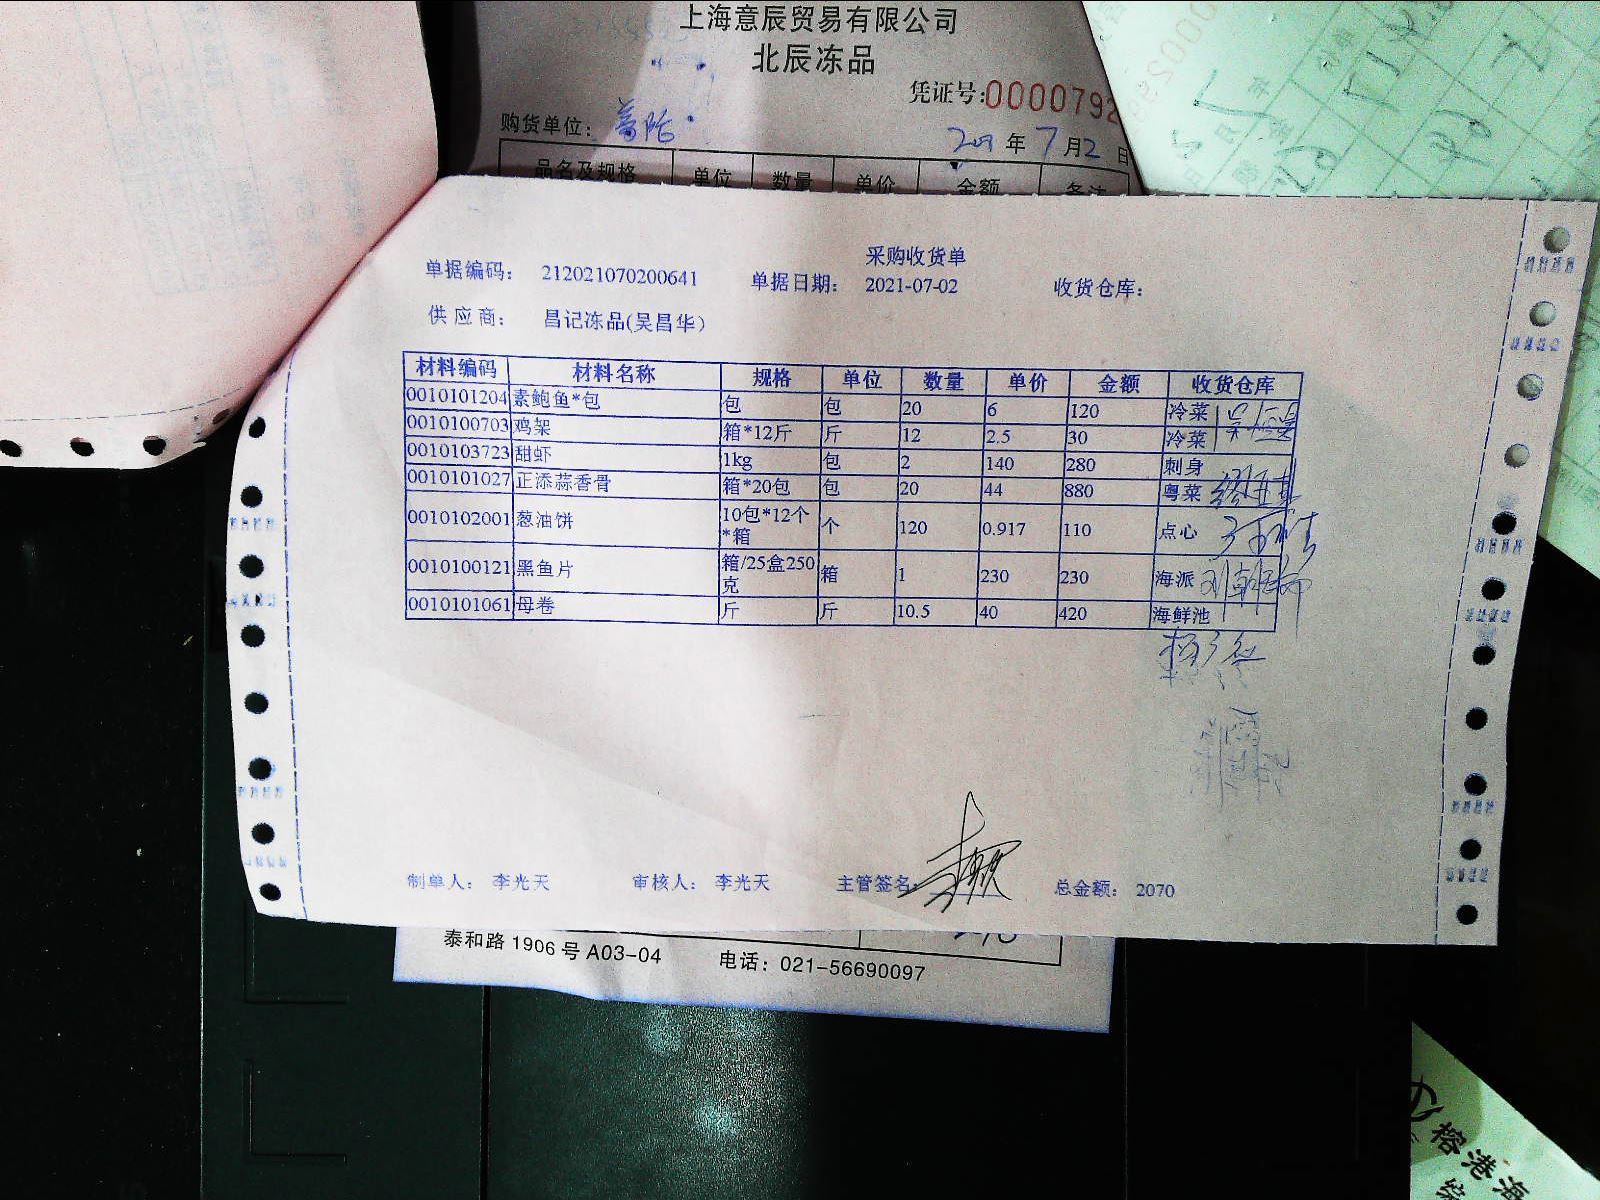 上海意辰贸易有限公司
北辰冻品
凭证号:0000792
购货单位:
2021年7月2日
品名及规格 单位 数量 单价 金额 备注
采购收货单
单据编码: 212021070200641 单据日期: 2021-07-02 收货仓库:
供应商: 昌记冻品(吴昌华)
材料编码 材料名称 规格 单位 数量 单价 金额 收货仓库
0010101204 素鲍鱼*包 包 包 20 6 120 冷菜
0010100703 鸡架 箱*12斤 斤 12 2.5 30 冷菜
0010103723 甜虾 1kg 包 2 140 280 刺身
0010101027 正添蒜香骨 箱*20包 包 20 44 880 粤菜
0010102001 葱油饼 10包*12个*箱 个 120 0.917 110 点心
0010100121 黑鱼片 箱/25盒250克 箱 1 230 230 海派
0010101061 母卷 斤 斤 10.5 40 420 海鲜池
制单人: 李光天 审核人: 李光天 主管签名: 总金额: 2070
泰和路1906号A03-04 电话: 021-56690097
榕港海